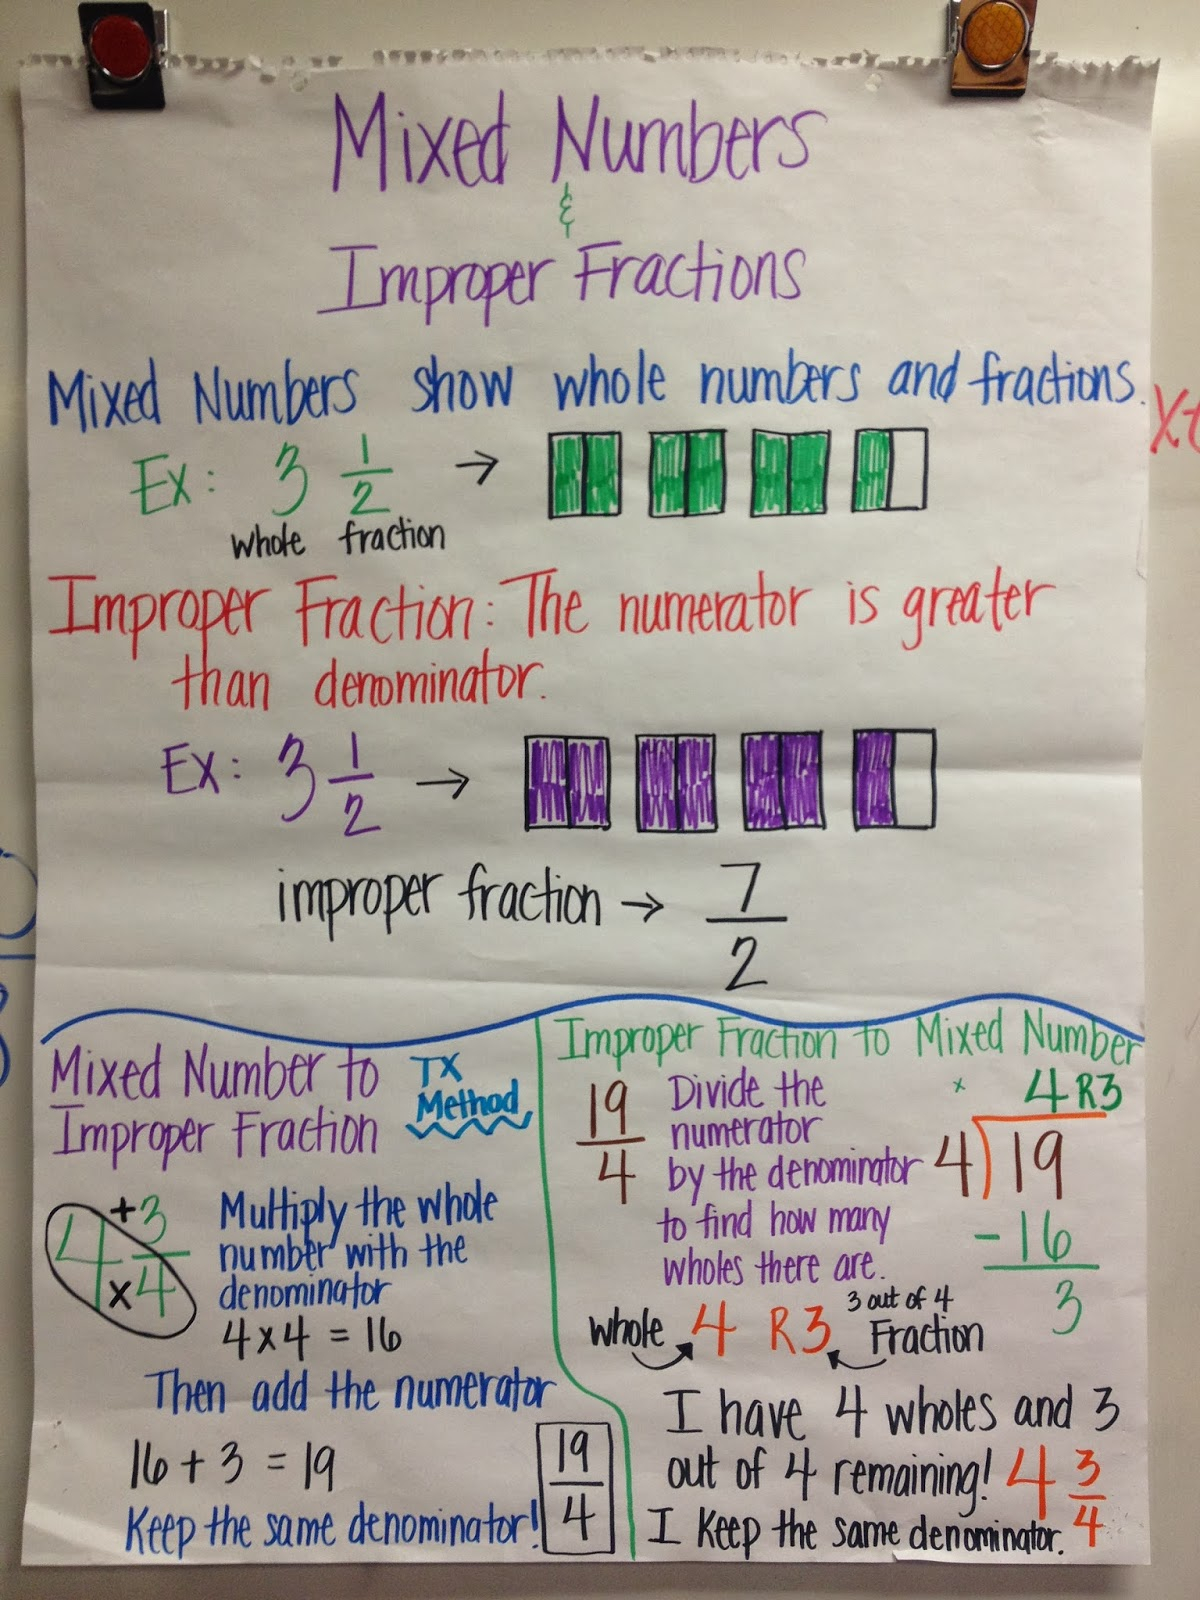 Mixed Numbers
&
Improper Fractions
Mixed Numbers show whole numbers and fractions.
Ex: 3 1/2 →
whole fraction
Improper Fraction: The numerator is greater
than denominator.
Ex: 3 1/2 →
improper fraction → 7/2
Mixed Number to
Improper Fraction
TX
Method
4 +3
x4
Multiply the whole
number with the
denominator
4 x 4 = 16
Then add the numerator
16 + 3 = 19
Keep the same denominator!
19/4
Improper Fraction to Mixed Number
19/4
Divide the
numerator
by the denominator
to find how many
wholes there are.
x 4 R3
4)19
-16
3
whole 4 R3 3 out of 4
Fraction
I have 4 wholes and 3
out of 4 remaining! 4 3/4
I keep the same denominator.